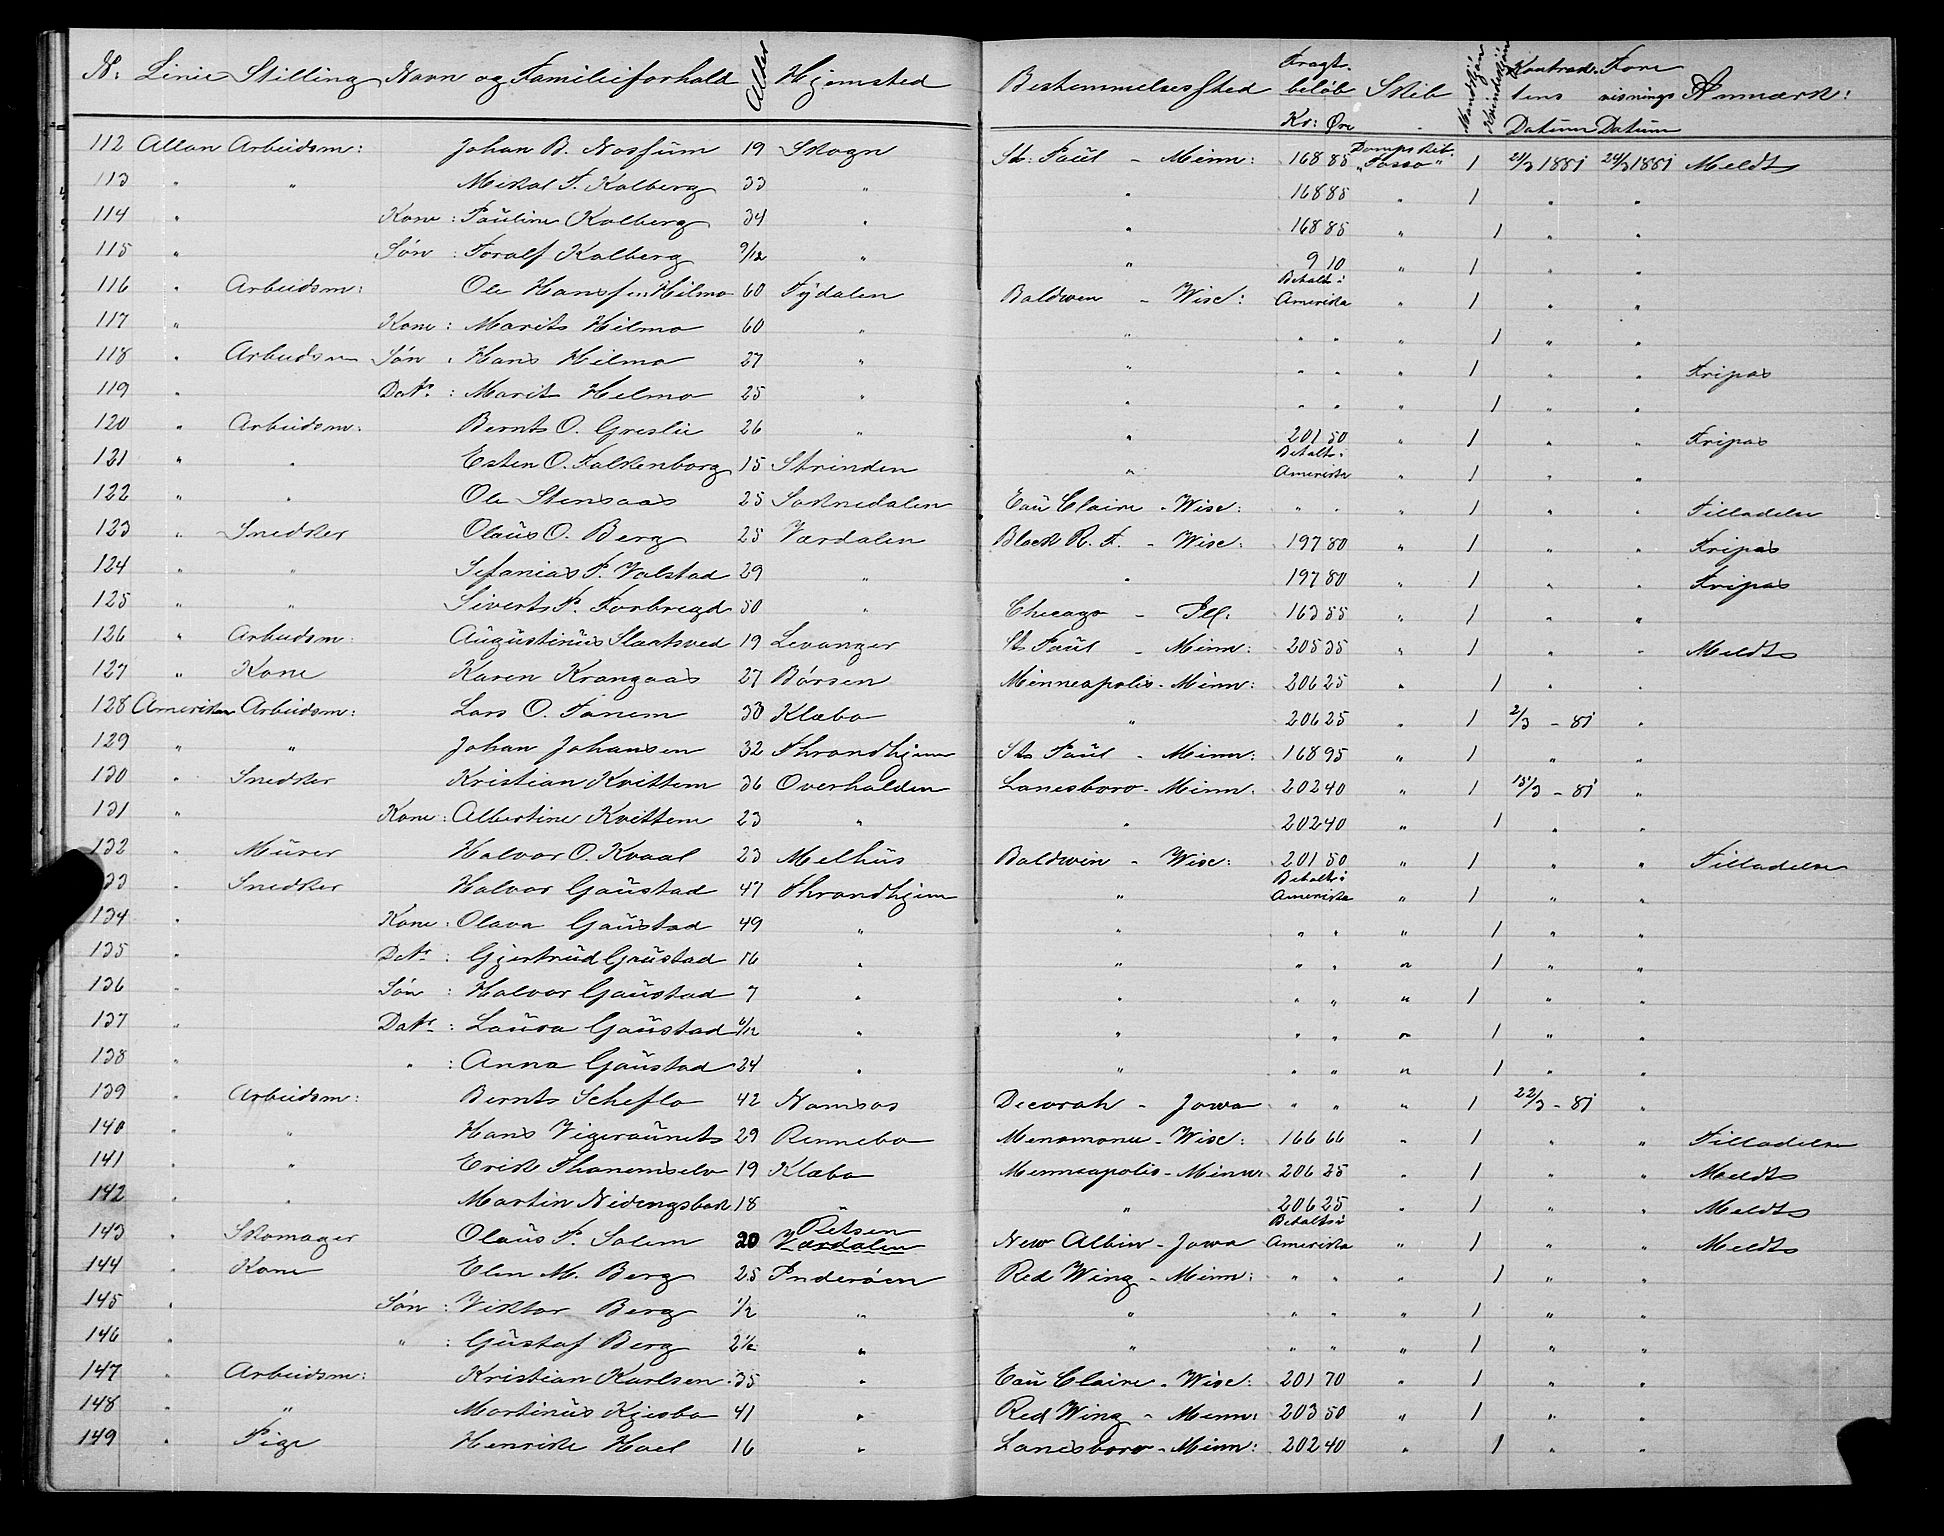 N: Linie Stilling Navn og Familieforhold Alder Hjemsted Bestemmelsessted Fragtbeløb Kr: Øre Skib Mandkjøn Kvindekjøn Kontraktens Datum Forevisnings Datum Anmærk:
112 Allan Arbeidsm: Johan B. Nossum 19 Skogn St: Paul - Minn: 168 85 Dampskib. "Tasso" 1 21/3 1881 24/3 1881 Meldt
113 " " Mikal F. Kolberg 33 " " 168 85 " 1 " "
114 " Kone: Pauline Kolberg 34 " " 168 85 " 1 " "
115 " Søn: Toralf Kolberg 9/12 " " 9 10 " 1 " "
116 " Arbeidsm: Ole Hansen Hilmo 60 Tydalen Baldwen - Wisc: Betalt i Amerika " 1 " "
117 " Kone: Marit Hilmo 60 " " " " " 1 " "
118 " Arbeidsm Søn: Hans Hilmo 27 " " " " " 1 " " Fripas
119 " Datr: Marit Hilmo 25 " " " " " 1 " "
120 " Arbeidsm: Bernt O. Greslie 26 " " 201 50 " 1 " " Fripas
121 " " Esten O. Falkenborg 15 Strinden " Betalt i Amerika " 1 " "
122 " " Ole Stensaas 25 Soknedalen Eau Claire - Wisc: " " " 1 " " Tilladelse
123 " Snedker Olaus O. Berg 25 Værdalen Black R. F. - Wisc: 197 80 " 1 " " Fripas
124 " " Sefanias P. Valstad 29 " " 197 80 " 1 " " Fripas
125 " " Sivert P. Forbregd 50 " Chicago - Ill: 163 55 " 1 " "
126 " Arbeidsm: Augustinus Slaatsved 19 Levanger St Paul - Minn: 205 35 " 1 " " Meldt
127 " Kone Karen Krangaas 27 Børsen Minneapolis - Minn: 206 25 " 1 " "
128 Amerikan Arbeidsm: Lars O. Tanem 30 Klæbo " 206 25 " 1 2/3 - 81 "
129 " " Johan Johansen 32 Throndhjem St Paul - Minn: 168 95 " 1 " "
130 " Snedker Kristian Kvittem 36 Overhalden Lanesboro - Minn: 202 40 " 1 15/3 - 81 "
131 " Kone: Albertine Kvittem 23 " " 202 40 " 1 " "
132 " Murer Halvor O. Kvaal 23 Melhus Baldwin - Wisc: 201 50 " 1 " " Tilladelse
133 " Snedker Halvor Gaustad 47 Throndhjem " Betalt i Amerika " 1 " "
134 " Kone: Olava Gaustad 49 " " " " " 1 " "
135 " Datr: Gjertrud Gaustad 16 " " " " " 1 " "
136 " Søn: Halvor Gaustad 7 " " " " " 1 " "
137 " Datr: Laura Gaustad 6/12 " " " " " 1 " "
138 " " : Anna Gaustad 24 " " " " " 1 " "
139 " Arbeidsm: Bernt Scheflo 42 Namsos Decorah - Jowa " " " 1 22/3 - 81 "
140 " " Hans Vigeraunet 29 Rennebo Menomonee - Wisc: 166 66 " 1 " " Tilladelse
141 " " Erik Thanemselv 19 Klæbo Minneapolis - Minn: 206 25 " 1 " " Meldt
142 " " Martin Nidengsbak 18 " " 206 25 " 1 " " Meldt
143 " Skomager Olaus P. Salem 20 Reksen Værdalen New Albin - Jowa Betalt i Amerika " 1 " " Meldt
144 " Kone Elen M. Berg 25 Inderøen Red Wing - Minn: " " " 1 " "
145 " Søn: Viktor Berg 1/2 " " " " " 1 " "
146 " " : Gustaf Berg 2 1/2 " " " " " 1 " "
147 " Arbeidsm: Kristian Karlsen 35 " Eau Claire - Wisc: 201 70 " 1 " "
148 " " Martinus Kjesbo 41 " Red Wing - Minn: 203 50 " 1 " "
149 " Pige Henrike Hoel 16 " Lanesboro - Minn: 202 40 " 1 " "